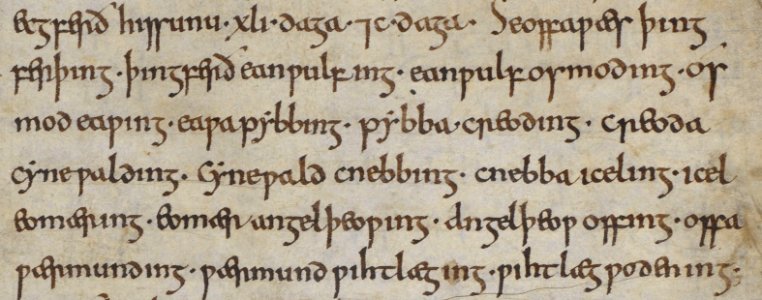 ecgferð his sunu · xli · daga · ⁊ c · daga · Se offa ƿæs þing
ferþing · þingferð eanƿulfing · eanƿulf osmoding · os
mod eaƿing · eaƿa pẏbbing · pẏbba · creoding · creoda
cẏneƿalding · Cẏneƿald cnebbing · cnebba iceling · icel
eomæring · eomær angelþeoƿing · Angelþeoƿ offing · offa
ƿærmunding · ƿærmund ƿihtlæging · ƿihtlæg ƿodening ·